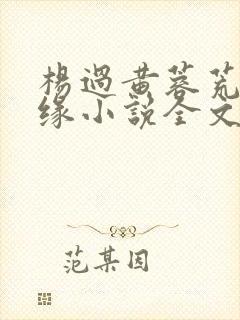 楊過黃蓉荒
缘小説全文
范某因